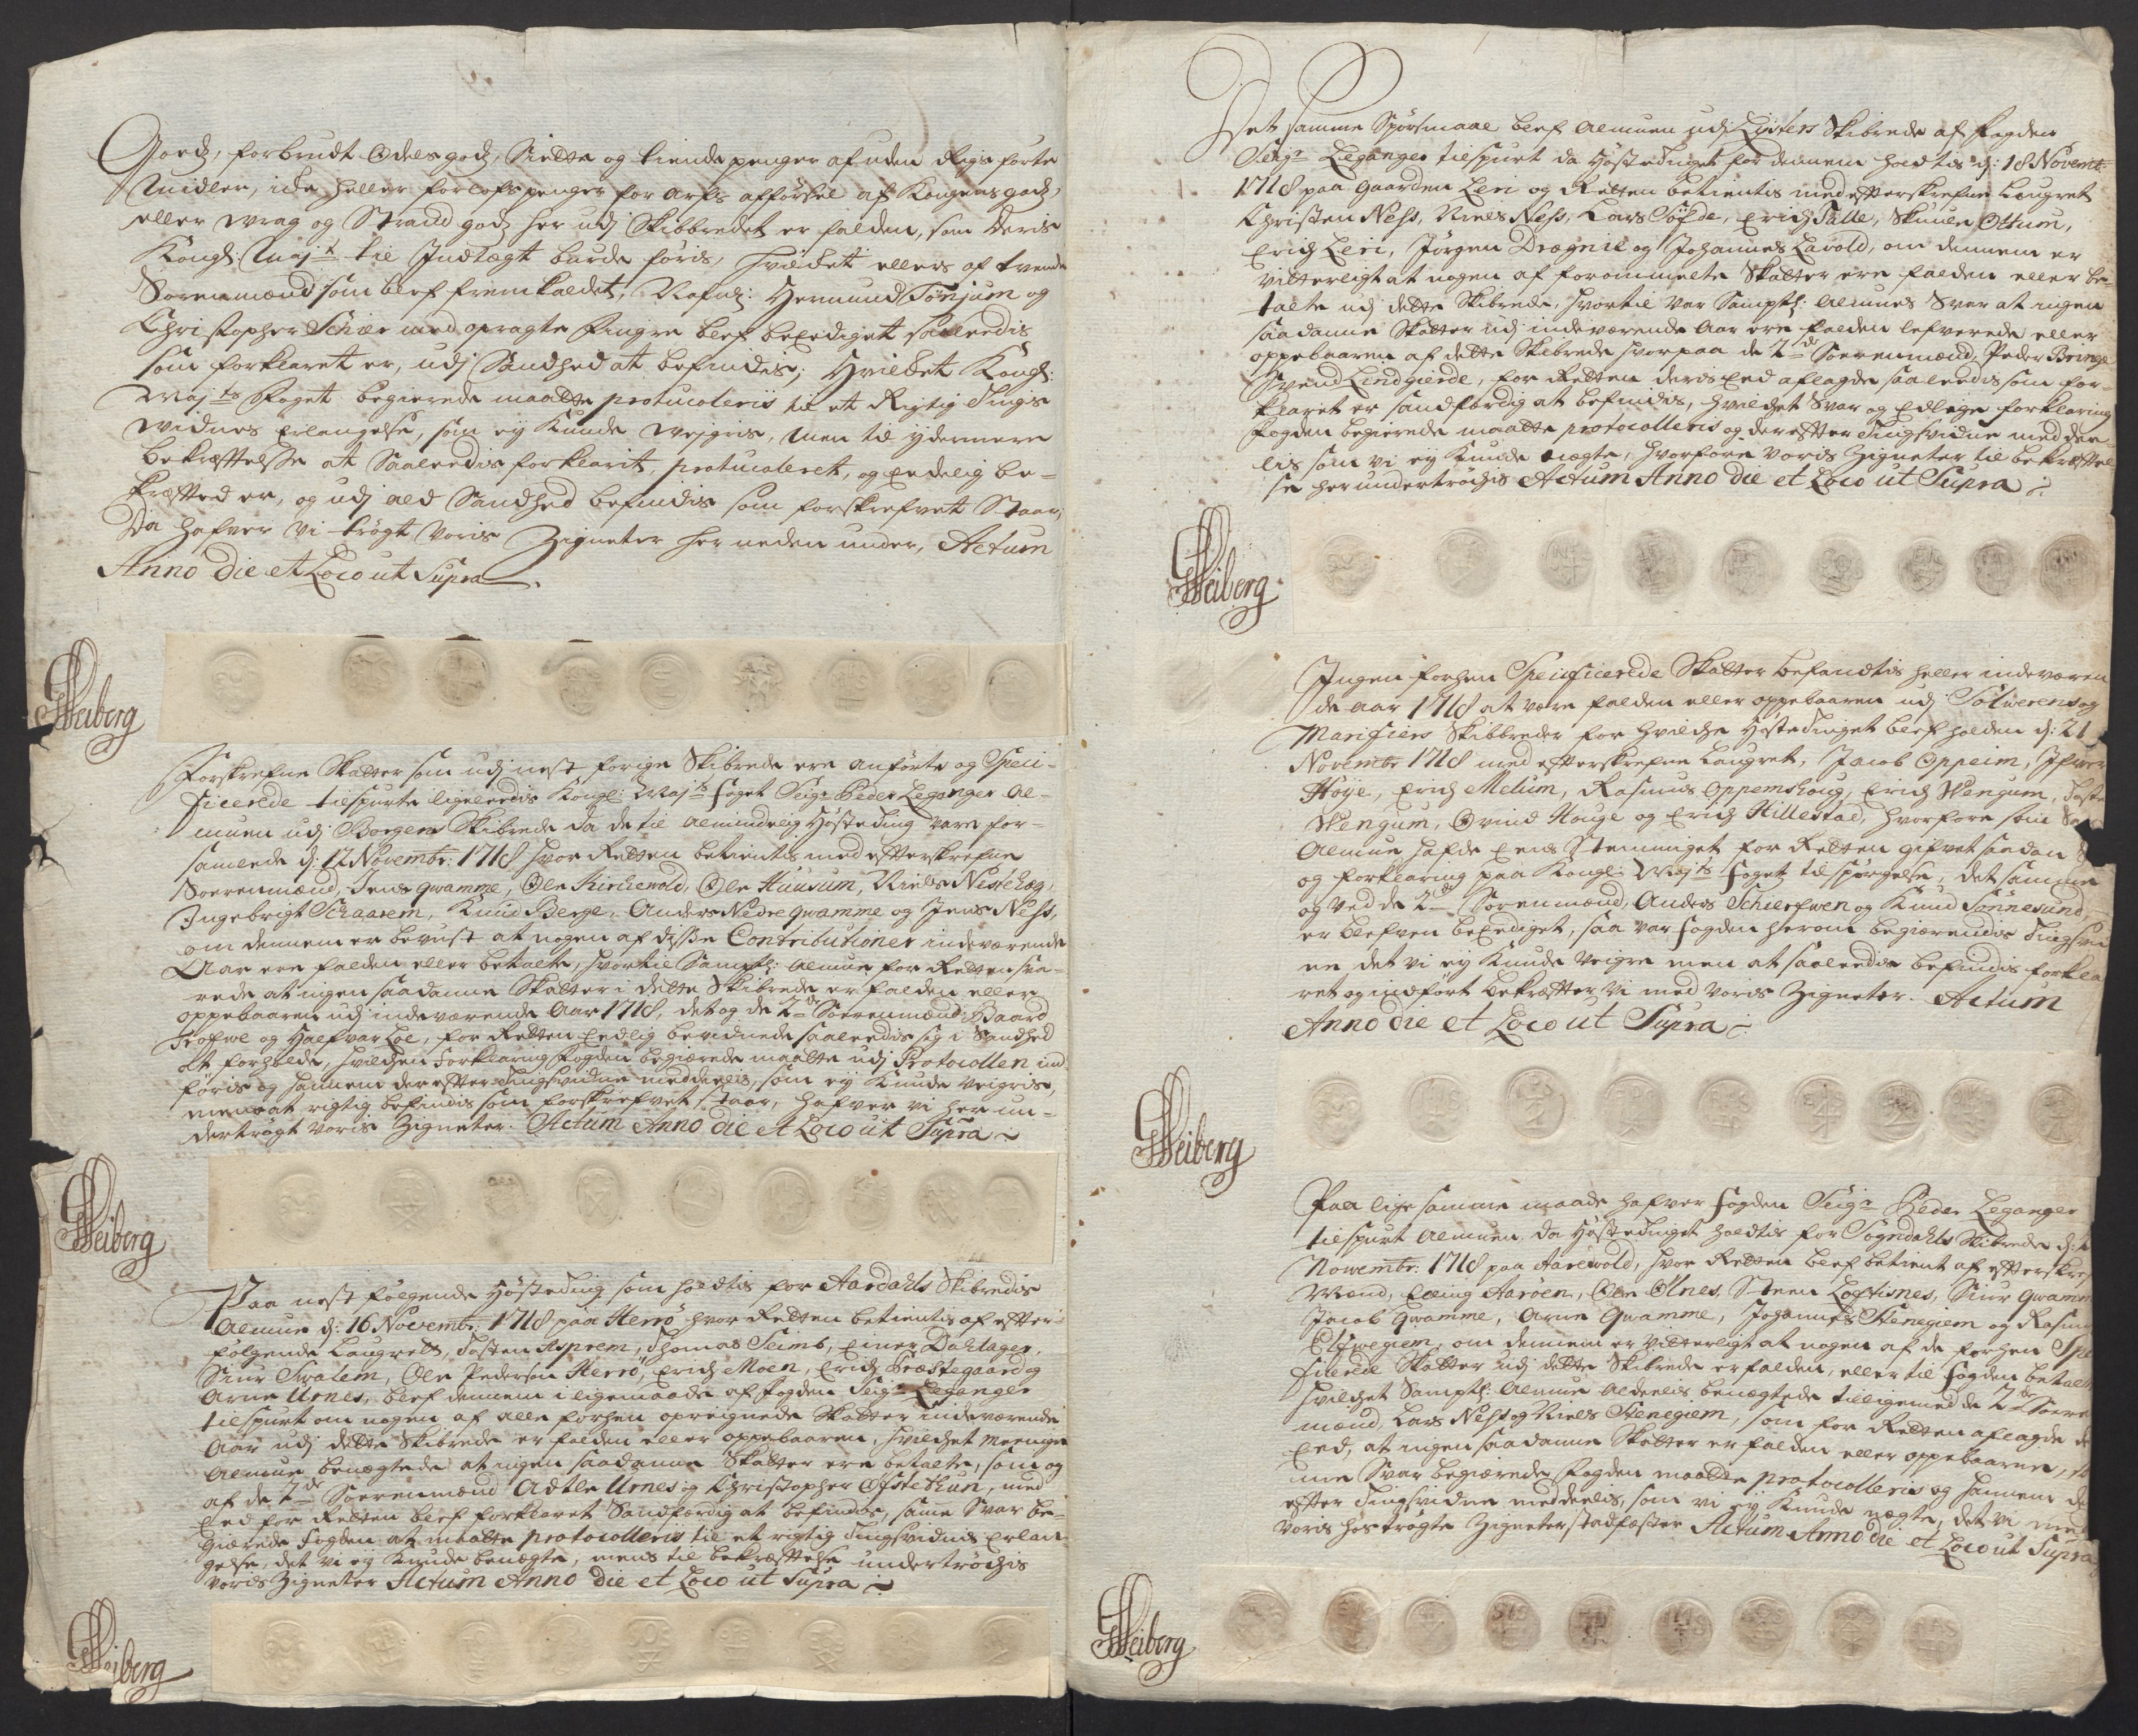 Goedz, forbrudt Odelsgodz, Siette og tiende penger af uden Rigs førte
Midler, icke heller forlofs penger for Arfs afførsel af Kongens godz,
eller Wrag og Strand godz her udj Skibbredet er falden, som deris
Kongl: Maj:t til Indtægt burde føris, Hvilcket ellers af tvende
Sorenmænd som blef fremkaldet, Nafnl: Hermund Tønjum og
Christopher Schiær med opragte Fingre blef beEdiget saaleedis
som forklaret er, udj Sandhed at befindis; Hvilcket Kongl:
Maj:ts Foget begierede maatte protucoleris til et Rigtig Tings
widnes Erlangelse, som ey Kunde Wejgris, Men til ydermere
bekræfftelsse at Saaleedis forklarit, protucoleret, og Eedelig be-
kræffted er, og udj ald Sandhed befindis som forskrefvet Staar,
Da hafver Vi trögt Voris Zigneter her neden under, Actum
Anno Die et Loco ut Supra
Heiberg
Forskrefne Skatter som udj nest forige Skibrede ere anførte og Speci-
ficerede tilspurte ligeleedis Kongl: Maj:ts foget Seigr Peder Leganger Al-
muen udj Borgens Skibrede da de til almindelig Høsteting vare for-
samlede d: 12 Novembr: 1718 hvor Retten betientes med effterskrefne
Soerenmænd, Jens Qwamme, Ole Kirchewold, Ole Huusum, Niels Nestehog,
Ingebrigt Schaarem, Knud Berge, Anders Nedre Qwamme og Jens Ness,
om dennem er bevust at nogen af disse Contributioner indeværende
Aar ere falden eller betalte, hvortil Samptl: Almue for Retten sva-
rede at ingen saadanne Skatter i dette Skibrede er falden eller
oppebaaren udj indeværende Aar 1718, det og de 2de Soerenmænd Baard
Trofwe og Halfvar Loe, for Retten Eedlig bevidnede saaleedis sig i Sandhed
at forholde, hvilcken Forklaring fogden begierede maatte udj Protocollen ind-
føris og hannem dereffter Tingsvidne meddeelis, som ey Kunde Veigris,
mens at rigtig befindis som forskrefvet staar, hafver vi her un-
dertrögt Voris Zigneter. Actum Anno die et Loco ut Supra
Heiberg
Paa nest følgende Høsteting som holdtis for Aardahls Skibredis
Almue d: 16 Novembr: 1718 paa Herrö hvor Retten betientis af effter-
følgende Laugrett, Tosten Asprem, Thomas Seimb, Einer Dahlager,
Siur Svalem, Ole Pedersen Herrö, Erich Moen, Erich Præstegaard og
Arne Urnes, blef dennem i ligemaade af fogden Seigr Leganger
tilspurt om nogen af alle forhen opreignede Skatter indeværende
Aar udj dette Skibrede er falden eller oppebaaren, hvilcket meenige
Almue benægtede at ingen saadanne Skatter ere betalte, som og
af de 2de Soerenmænd Adtle Urnes og Christopher Ofstethun, med
Eed for Retten blef forklaret Sandfærdig at befindis, samme Svar be-
gierede fogden at maatte protocolleris til et rigtig Tingsvidnis Erlan-
gelse, det vi ey Kunde benægte, mens til bekræfftelse undertröckis
voris Zigneter Actum Anno die et Loco ut Supra
Heiberg
Det samme Spørsmaal blef Almuen udj Lysters Skibrede af Fogden
Seigr Leganger tilspurt da Høstetinget for dennem holdtis d: 18 Novemb:
1718 paa gaarden Leri og Retten betientis med effterskrefne Laugret
Christen Ness, Niels Ness, Lars Söfde, Erich Talle, Skule Ottum,
Erich Leri, Jörgen Drægnie og Johannes Lavold, om dennem er
vitterligt at nogen af forommelte Skatter ere falden eller be-
talte udj dette Skibrede, hvortil var Samptl: Almues Svar at ingen
saadanne Skatter udj indeværende Aar ere falden lefverede eller
oppebaaren af dette Skibrede hvorpaa de 2de Soerenmænd, Peder Bringe
Svend Lindgierde, for Retten deris Eed aflagde saaleedis som for-
klaret er sandfærdig at befindis, hvilcket Svar og Edlige forklaring
fogden begierede maatte protocolleris og dereffter Tingsvidne meddee-
lis som vi ey Kunde nægte, hvorfore Voris Zigneter til bekræfftel-
se her undertröchis Actum Anno die et Loco ut Supra
Heiberg
Ingen forhen Specificerede Skatter befandtis heller indeværen
de Aar 1718 at være falden eller oppebaaren udj Solwerens og
Marifiers Skibbreder for hvilcke Høstetinget blef holden d: 21
Novembr 1718 med effterskrefne Laugret, Jacob Oppeim, Ifwer
Höye, Erich Melum, Rasmus Oppemshoug, Erich Wengum, Toste
Wengum, Ovind Houge og Erich Hillestad, hvorfore som
Almue hafde Eens Stemmiget for Retten gifvet saadan
og forklaring paa Kongl: Maj:ts fogets tilspørgelse, det samme
og ved de 2de Sorenmænd, Anders Schierfwen og Knud Sonnesund,
er blefven beEediget, saa var fogden herom begierendis Tingsvid
ne det vi ey Kunde Veigre men at saaleedis befindis forkla
ret og indfört bekræffter vi med Voris Zigneter. Actum
Anno die et Loco ut Supra
Heiberg
Paa lige samme maade hafver fogden Seigr Peder Leganger
tilspurt Almuen da Høstetinget holdtis for Sogndahls Skibrede d:
Nowembr: 1718 paa Aarewold, hvor Retten blef betient af effterskref
Mænd, Elling Aaröen, Ole Ølnes, Steen Loftisnes, Siur Qwamm
Jacob Qwamme, Arne Qwamme, Johannes Stenegiem og Rasmus
Elfwegiem, om dennem er vitterligt at nogen af de forhen Spe
ficerede Skatter udj dette Skibrede er falden, eller til fogden betalt
hvilcket Samptl: Almue Alderlis benægtede tilligemed de 2de Soere
mænd, Lars Ness og Niels Stenegiem, som for Retten aflagde de
Eed, at ingen saadanne Skatter er falden eller oppebaaren,
me Svar begierede fogden maatte protocolleris og hannem de
effter Tingsvidne meddeelis, som vi ey Kunde nægte, det vi med
Voris hos trögte Zigneter stadfæster Actum Anno die et Loco ut Supra
Heiberg